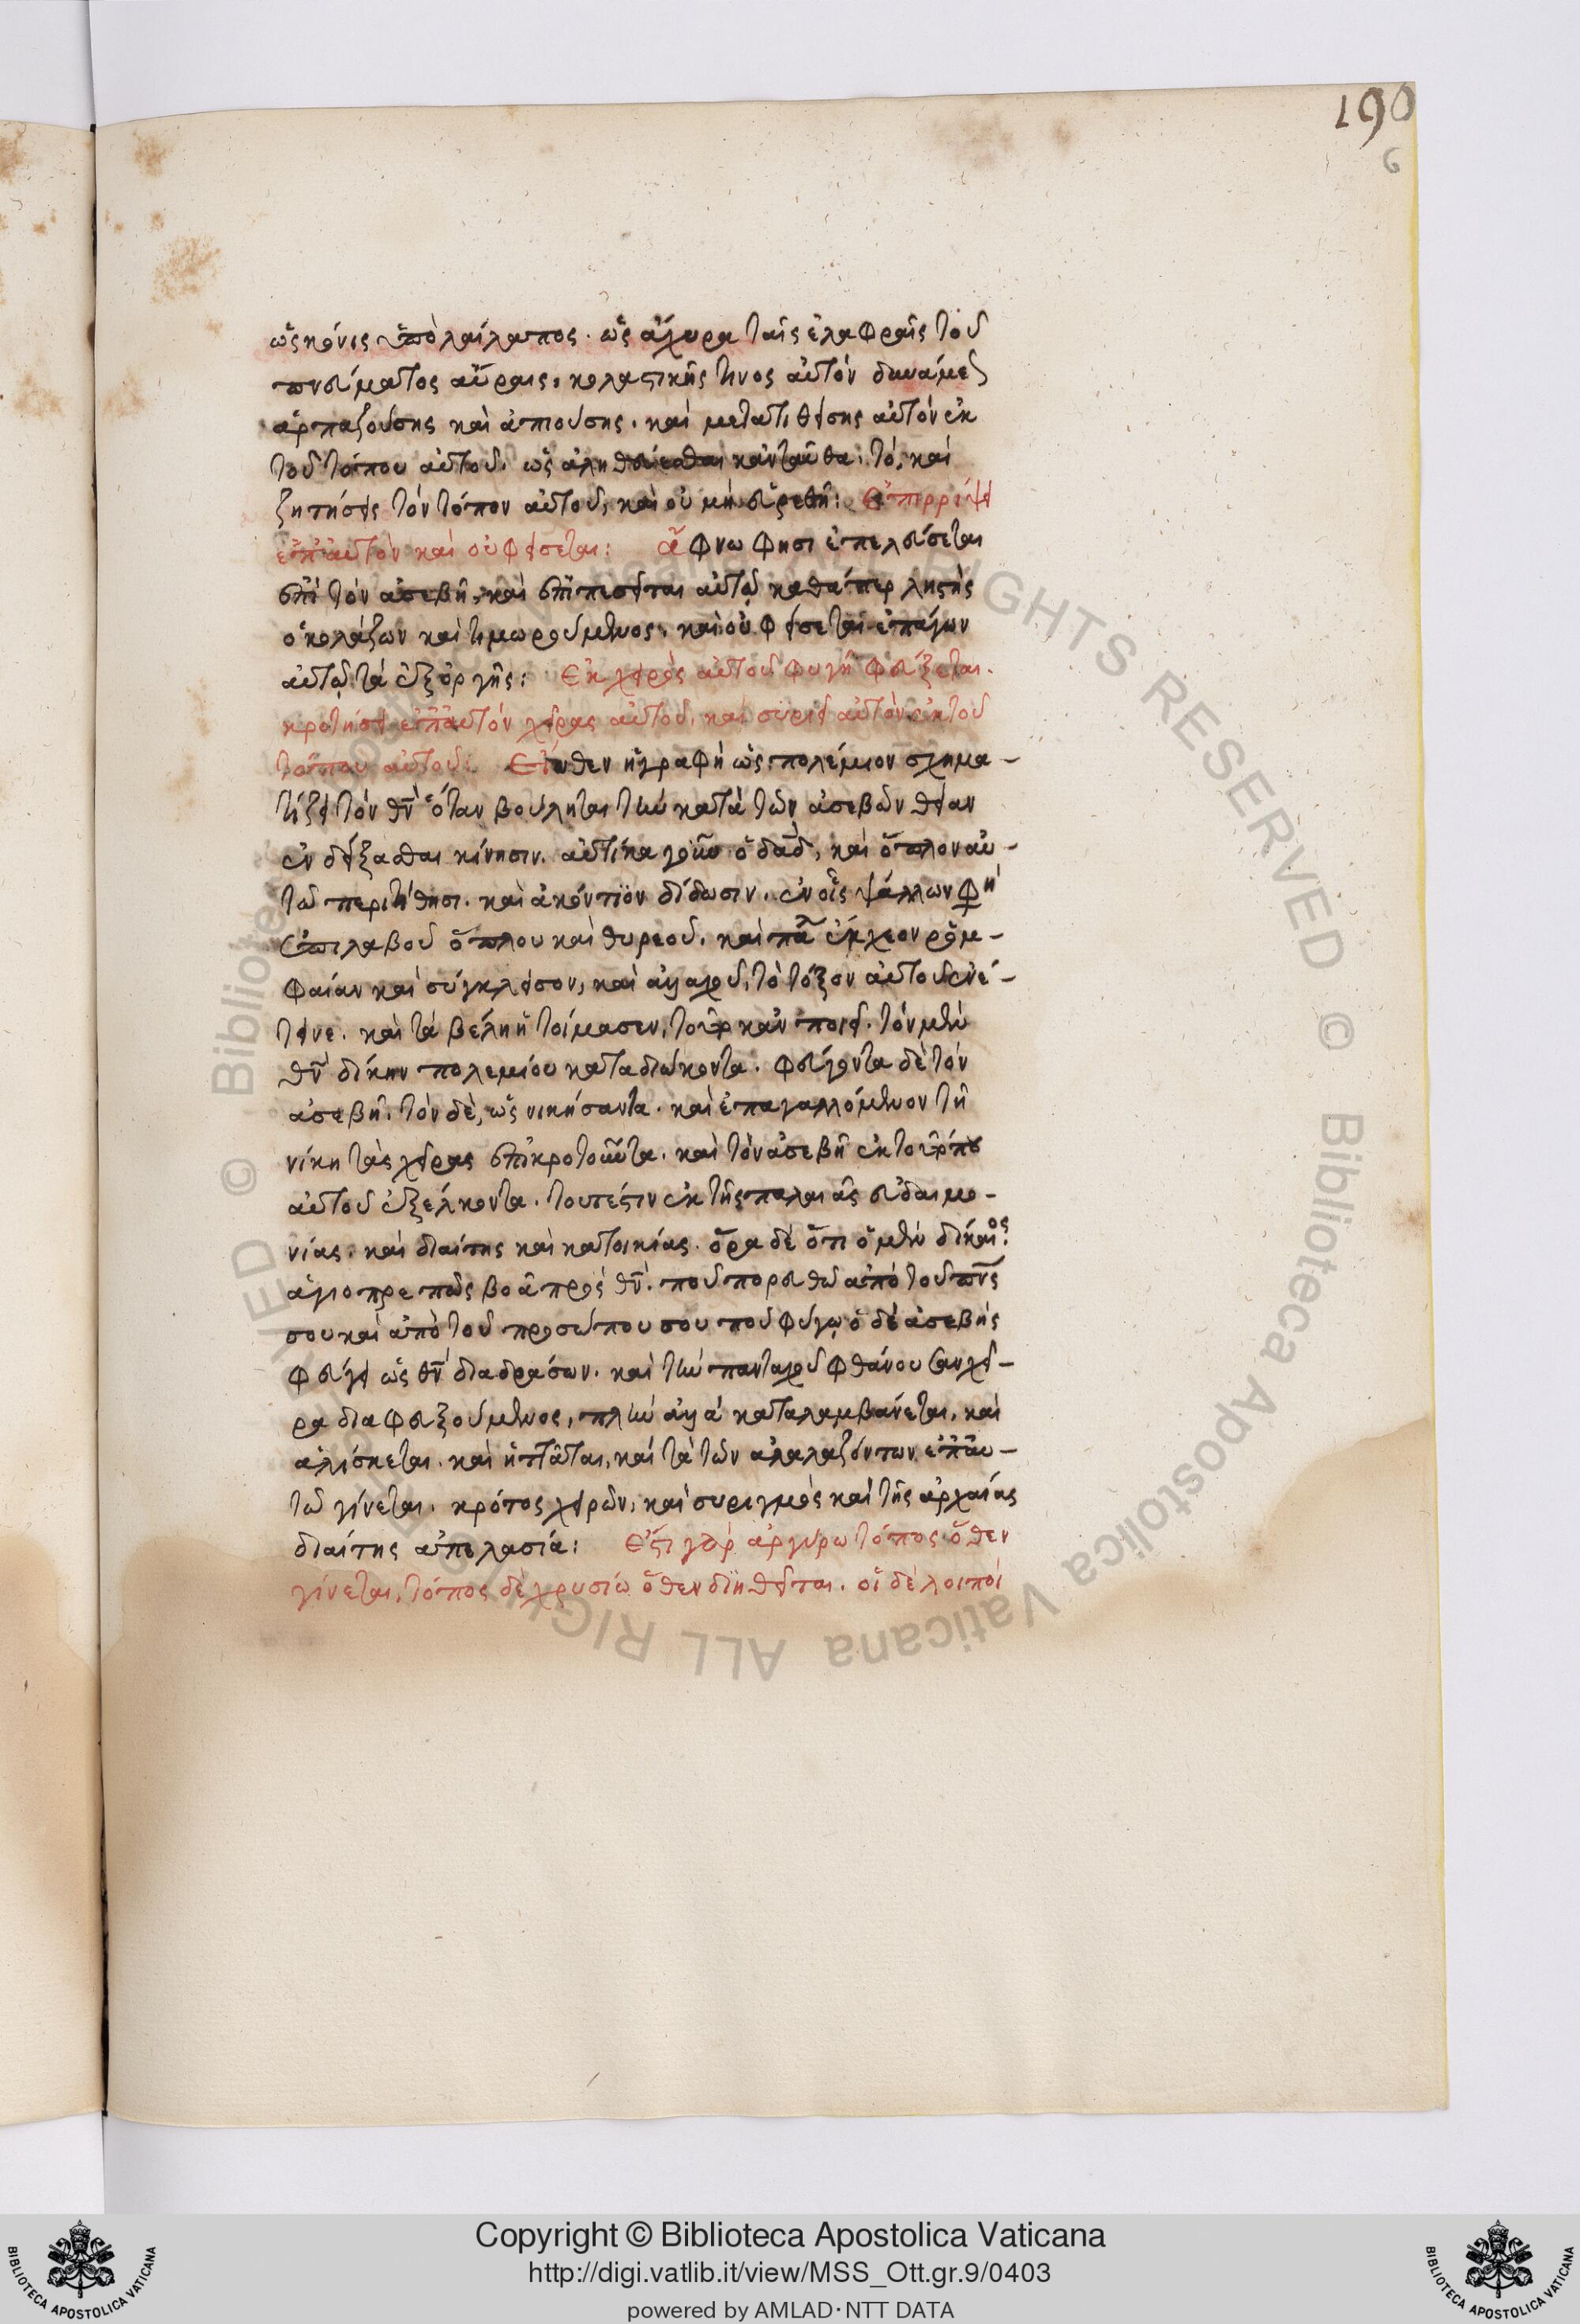 190
6
ὡς κόνις ὑπὸ λαίλαπος. ὡς ἄχυρα ταῖς ἐλαφραῖς τοῦ
πνεύματος αὔραις, κολαστικῆς τινος αὐτὸν δυνάμεως
ἁρπαζούσης καὶ ἀπιούσης. καὶ μετατιθείσης αὐτὸν ἐκ
τοῦ τόπου αὐτοῦ. ὡς ἀληθεύεσθαι κἀνταῦθα, τό, καὶ
ζητήσεις τὸν τόπον αὐτοῦ, καὶ οὐ μὴ εὑρεθῇ: Ἐπιρρίψει
ἐπ' αὐτὸν καὶ οὐ φείσεται: ἄφνω φησι ἐπελεύσεται
ἐπὶ τὸν ἀσεβῆ, καὶ ἐπιπεσεῖται αὐτῷ καθάπερ λῃστὴς
ὁ κολάζων καὶ τιμωρούμενος, καὶ οὐ φείσεται ἐπάγων
αὐτῷ τὰ ἐξ ὀργῆς: Ἐκ χειρὸς αὐτοῦ φυγῇ φεύξεται.
κροτήσει ἐπ' αὐτὸν χεῖρας αὐτοῦ, καὶ συριεῖ αὐτὸν ἐκ τοῦ
τόπου αὐτοῦ: Εἴωθεν ἡ γραφὴ ὡς πολέμιον σχημα-
τίζειν τὸν θν ὅταν βούληται τὴν κατὰ τῶν ἀσεβῶν θείαν
ἐνδείξασθαι κίνησιν. αὐτίκα γοῦν ὁ δαδ, καὶ ὅπλον αὐ-
τῷ περιτίθησι. καὶ ἀκόντιον δίδωσιν. ἐν οἷς ψάλλων φη
ἐπιλαβοῦ ὅπλου καὶ θυρεοῦ. καὶ πα ἔκχεον ῥομ-
φαίαν καὶ σύγκλεισον, καὶ ἀλλαχοῦ, τὸ τόξον αὐτοῦ ἐνέ-
τεινε. καὶ τὰ βέλη ἡτοίμασεν, τοῦτο κἀν ποιεῖ. τὸν μὲν
θν δίκην πολεμίου καταδιώκοντα. φεύγοντα δὲ τὸν
ἀσεβῆ. τὸν δὲ, ὡς νικήσαντα. καὶ ἐπαγαλλόμενον τῇ
νίκῃ τὰς χεῖρας ἐπικροτοῦντα. καὶ τὸν ἀσεβῆ ἐκ τοῦ τόπου
αὐτοῦ ἐξέλκοντα. τουτέστιν ἐκ τῆς παλαιᾶς εὐδαιμο-
νίας. καὶ διαίτης καὶ κατοικίας. ὅρα δὲ ὅτι ὁ μὲν δίκαιος
ἁγιοπρεπῶς βοᾷ πρὸς θν. ποῦ πορευθῶ ἀπὸ τοῦ πνς
σου καὶ ἀπὸ τοῦ προσώπου σου ποῦ φύγω ὁ δὲ ἀσεβὴς
φεύγει ὡς θν διαδράσων. καὶ τὴν πανταχοῦ φθάνουσαν χεῖ-
ρα διαφευξούμενος, πλὴν ἀλλὰ καταλαμβάνεται, καὶ
ἁλίσκεται. καὶ ἡττᾶται, καὶ τὰ τῶν ἀλαλαζόντων ἐπ' αὐ-
τῷ γίνεται. κρότος χειρῶν, καὶ συριγμὸς καὶ τῆς ἀρχαίας
διαίτης ἀπελασία: Ἔστι γὰρ ἀργύρω τόπος ὅθεν
γίνεται, τόπος δὲ χρυσίω ὅθεν διηθεῖται. οἱ δὲ λοιποὶ
Copyright © Biblioteca Apostolica Vaticana
http://digi.vatlib.it/view/MSS_Ott.gr.9/0403
powered by AMLAD·NTT DATA